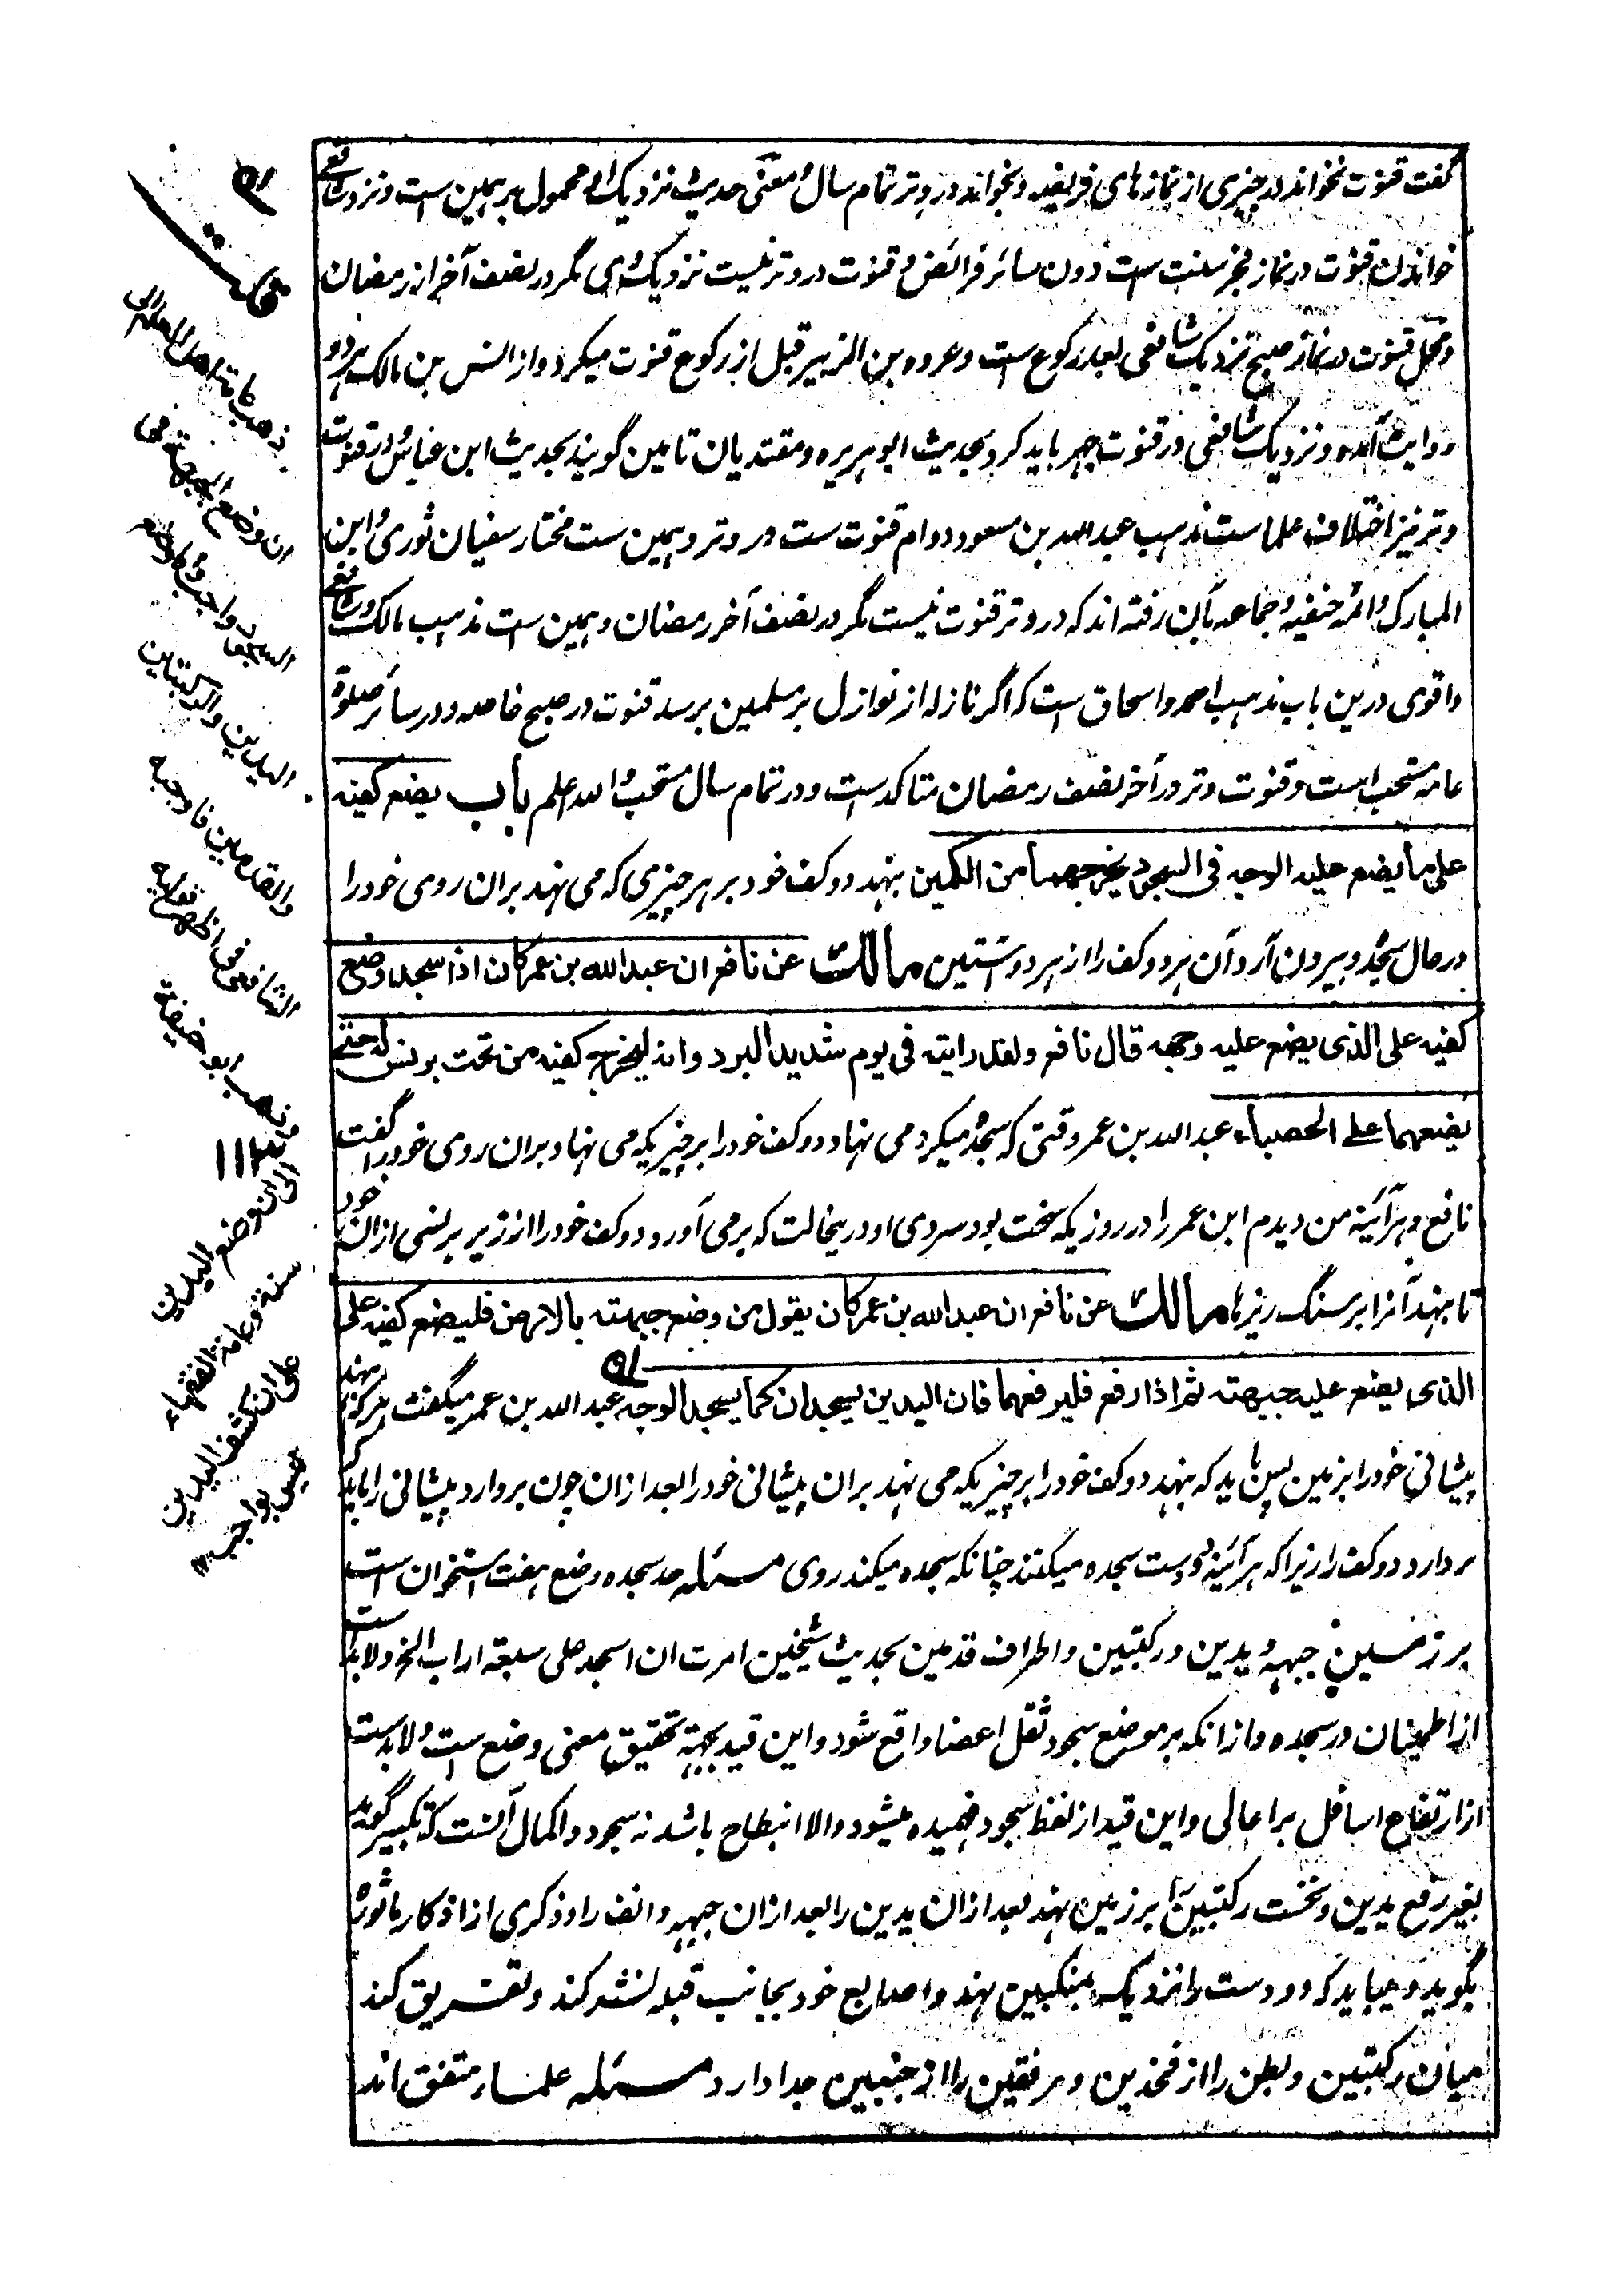 گفت قنوت نخواند در چیزی از نمازهای فریضه و بخواند در وتر تمام سال و معنی حدیث نزدیک او محمول بر همین است و نزد شافعی
خواندن قنوت در نماز فجر سنت است دون سائر فرائض و قنوت در وتر نیست نزدیک وی مگر در نصف آخر از رمضان
و محل قنوت در نماز صبح نزدیک شافعی بعد رکوع است و عروه بن الزبیر قبل از رکوع قنوت میکرد و از انس بن مالک هر دو
روایت آمده و نزدیک شافعی در قنوت جهر باید کرد بحدیث ابو هریره و مقتدیان تامین گویند بحدیث ابن عباس و در قنوت
وتر نیز اختلاف علماست مذهب عبد الله بن مسعود دوام قنوت ست در وتر و همین ست مختار سفیان ثوری و ابن
المبارک و ائمه حنفیه و جماعه بآن رفته اند که در وتر قنوت نیست مگر در نصف آخر رمضان و همین ست مذهب مالک و شافعی
و اقوی درین باب مذهب احمد و اسحاق است که اگر نازله از نوازل بر مسلمین برسد قنوت در صبح خاصه و در سائر صلوة
عامه مستحب است و قنوت وتر در آخر نصف رمضان متاکد ست و در تمام سال مستحب و الله اعلم باب یضع کفیه
علی ما یضع علیه الوجه فی السجود یخرجهما من الکمین بنهد دو کف خود بر هر چیزی که می نهد بران روی خود را
در حال سجده و بیرون آرد آن هر دو کف را از هر دو آستین مالك عن نافع ان عبد الله بن عمر کان اذا سجد وضع
کفیه علی الذی یضع علیه وجهه قال نافع ولقد رایته فی یوم شدید البرد وانه لیخرج کفیه من تحت برنس له حتی
یضعهما علی الحصباء عبد الله بن عمر وقتی که سجده میکرد می نهاد دو کف خود را بر چیزیکه می نهاد بران روی خود را گفت
نافع و هرآئینه من دیدم ابن عمر را در روزیکه سخت بود سردی او در ینحالت که بر می آورد دو کف خود را از زیر برنسی از ان خود
تا بنهد آنرا بر سنگ ریزها مالك عن نافع ان عبد الله بن عمر کان یقول من وضع جبهته بالارض فلیضع کفیه علی
الذی یضع علیه جبهته ثم اذا رفع فلیرفعهما فان الیدین یسجدان کما یسجد الوجه عبد الله بن عمر میگفت هر که بنهد
پیشانی خود را بزمین پس باید که بنهد دو کف خود را بر چیزیکه می نهد بران پیشانی خود را بعد ازان چون بردارد پیشانی را باید که
بردارد دو کف را زیرا که هرآئینه دو دست سجده میکنند چنانکه سجده میکند روی مسئله حد سجده وضع هفت استخوان است
بر زمین جبهه و یدین و رکبتین و اطراف قدمین بحدیث شیخین امرت ان اسجد علی سبعة اراب الخ و لابد است
از اطمینان در سجده و از آنکه بر موضع سجود ثقل اعضا واقع شود و این قید بجهة تحقیق معنی وضع است و لابد ست
از ارتفاع اسافل بر اعالی و این قید از لفظ سجود فهمیده میشود والا انبطاح باشد نه سجود و اکمال آنست که تکبیر گوید
بغیر رفع یدین و نخست رکبتین را بر زمین نهد بعد ازان یدین را بعد ازان جبهه و انف را و ذکری از اذکار ماثوره
بگوید و میباید که دو دست را نزدیک منکبین نهد و اصابع خود بجانب قبله نشر کند و تفریق کند
میان رکبتین و بطن را از فخذین و مرفقین را از جنبین جدا دارد مسئله علماء متفق اند
ذهب عامة اهل العلم الی
ان وضع الجبهة فی
السجود واجب و اما وضع
الیدین والرکبتین
والقدمین فاوجبه
الشافعی فی اظهر قولیه
و ذهب ابو حنیفة
الی ان وضع الیدین
سنة وعامة الفقهاء
علی ان کشف الیدین
لیس بواجب ۱۲